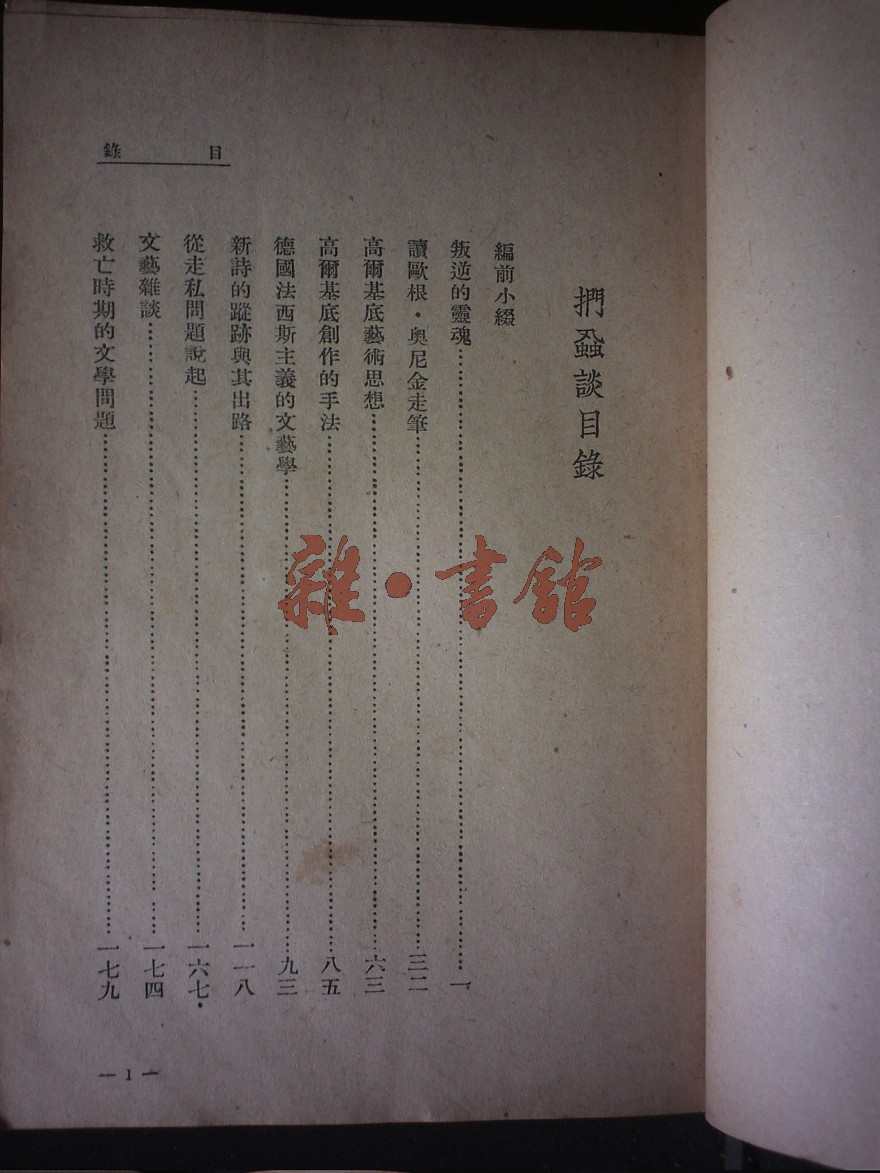 目錄
捫蝨談目錄
編前小綴
叛逆的靈魂……一
讀歐根・奧尼金走筆……三二
高爾基底藝術思想……六三
高爾基底創作的手法……八五
德國法西斯主義的文藝學……九三
新詩的蹤跡與其出路……一一八
從走私問題說起……一六七
文藝雜談……一七四
救亡時期的文學問題……一七九
— 1 —
雜・書館